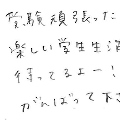 受験頑張った
楽しい学生生活
待ってるよー!
がんばって下さ